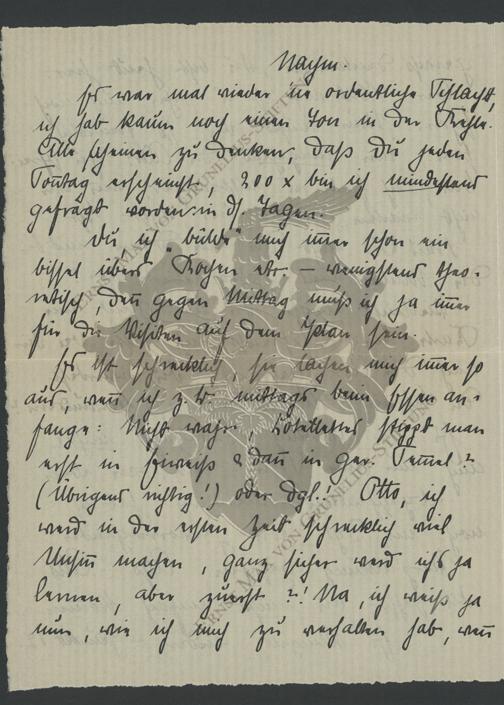 Nachm.
Es war mal wieder 'ne ordentliche Schlacht,
ich hab kaum noch einen Ton in der Kehle.
Alle scheinen zu denken, daß Du jeden
Sonntag erscheinst, 200 x bin ich mindestens
gefragt worden in ds. Tagen.
Du, ich "bilde" mich immer schon ein
bissel übers Kochen etc. – wenigstens theo-
retisch, denn gegen Mittag muß ich ja immer
für die Visiten auf dem Plan sein.
Es ist schrecklich, sie lachen mich immer so
aus, wenn ich z. B. mittags beim Essen an-
fange: Nicht wahr, Kotelettes stippt man
erst in Eiweiß & dann in ger. Semmel?
(Übrigens richtig!) oder dgl.! Otto, ich
werd in der ersten Zeit schrecklich viel
Unsinn machen, ganz sicher werd ichs ja
lernen, aber zuerst?! Na, ich weiß ja
nun, wie ich mich zu verhalten hab, wenn